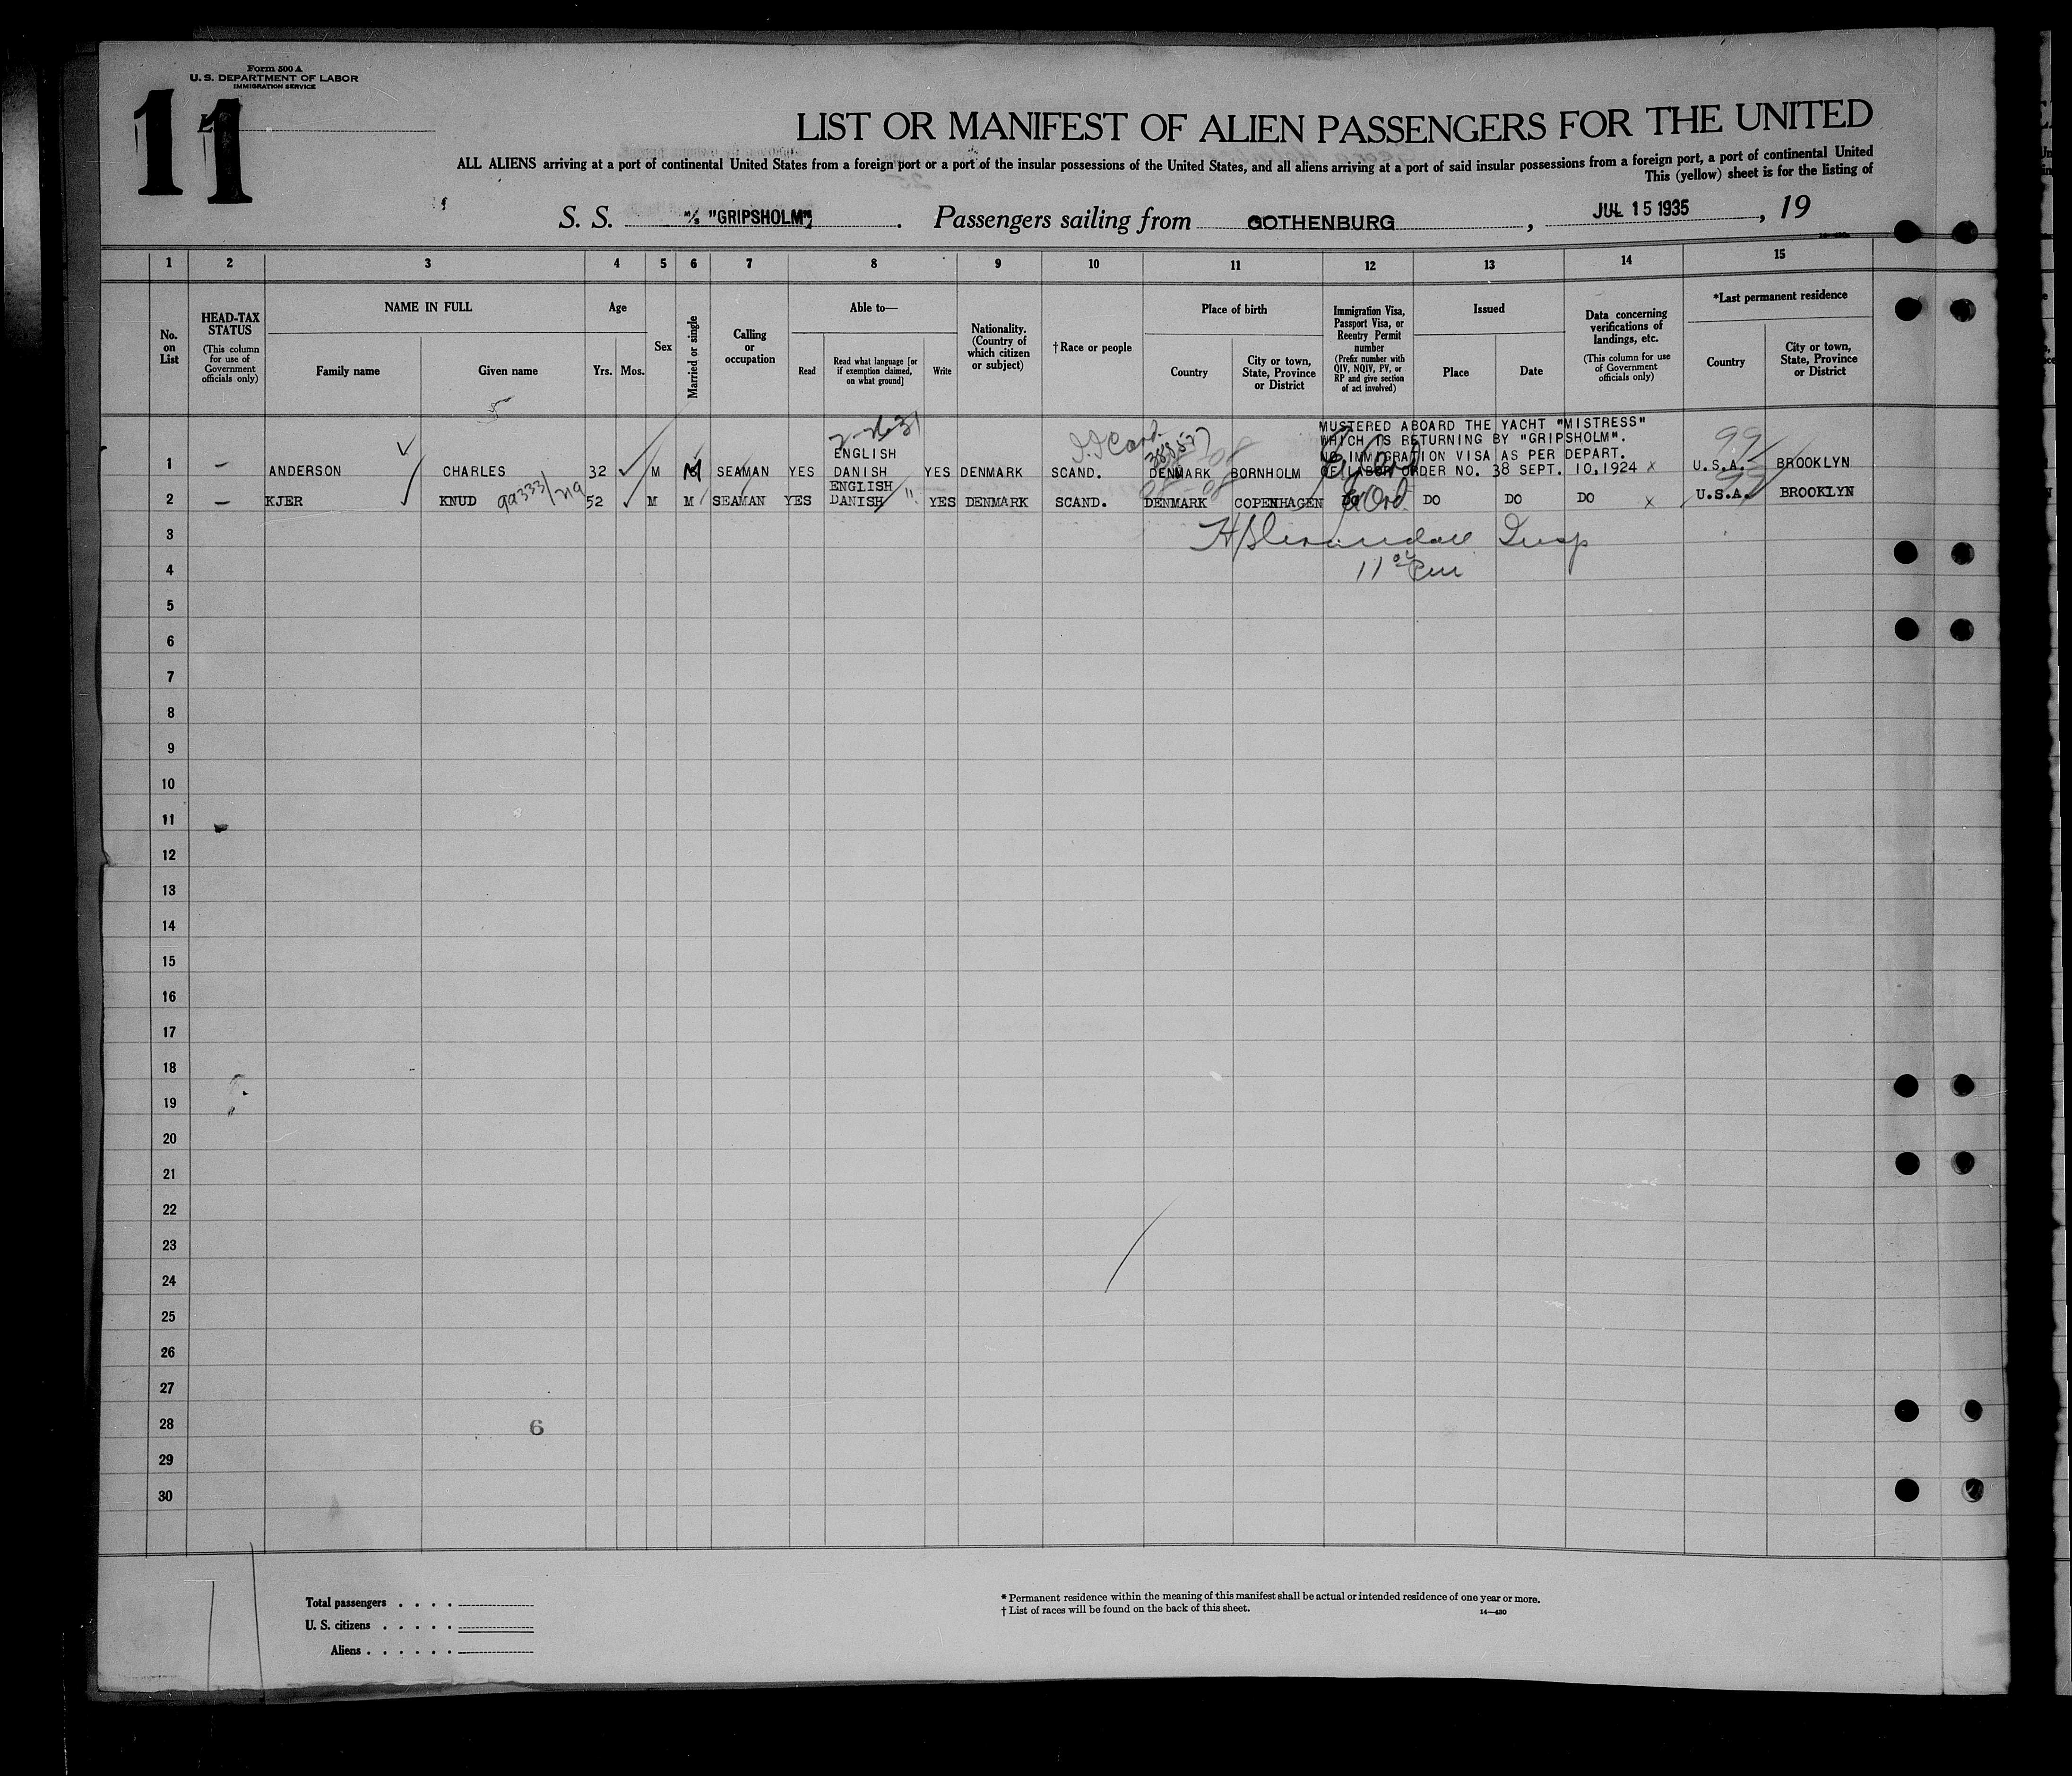 Form 500 A
U. S. DEPARTMENT OF LABOR
IMMIGRATION SERVICE
11
LIST OR MANIFEST OF ALIEN PASSENGERS FOR THE UNITED
ALL ALIENS arriving at a port of continental United States from a foreign port or a port of the insular possessions of the United States, and all aliens arriving at a port of said insular possessions from a foreign port, a port of continental United
This (yellow) sheet is for the listing of
S. S. M/S "GRIPSHOLM", Passengers sailing from GOTHENBURG, JUL 15 1935, 19
1 2 3 4 5 6 7 8 9 10 11 12 13 14 15
No. on List
HEAD-TAX STATUS
(This column for use of Government officials only)
NAME IN FULL
Family name
Given name
Age
Yrs. Mos.
Sex
Married or single
Calling or occupation
Able to—
Read
Read what language [or if exemption claimed, on what ground]
Write
Nationality. (Country of which citizen or subject)
†Race or people
Place of birth
Country
City or town, State, Province or District
Immigration Visa, Passport Visa, or Reentry Permit number
(Prefix number with QIV, NQIV, PV, or RP and give section of act involved)
Issued
Place
Date
Data concerning verifications of landings, etc.
(This column for use of Government officials only)
*Last permanent residence
Country
City or town, State, Province or District
MUSTERED ABOARD THE YACHT "MISTRESS"
WHICH IS RETURNING BY "GRIPSHOLM".
NO IMMIGRATION VISA AS PER DEPART.
OF LABOR ORDER NO. 38 SEPT. 10,1924 x
1 — ANDERSON CHARLES 32 M M SEAMAN YES ENGLISH DANISH YES DENMARK SCAND. DENMARK BORNHOLM U.S.A. BROOKLYN
2 — KJER KNUD 99333/719 52 M M SEAMAN YES ENGLISH DANISH " YES DENMARK SCAND. DENMARK COPENHAGEN DO DO DO DO x U.S.A. BROOKLYN
3
4
5
6
7
8
9
10
11
12
13
14
15
16
17
18
19
20
21
22
23
24
25
26
27
28 6
29
30
Total passengers . . . .
U. S. citizens . . . . .
Aliens . . . . . .
* Permanent residence within the meaning of this manifest shall be actual or intended residence of one year or more.
† List of races will be found on the back of this sheet.
14—430